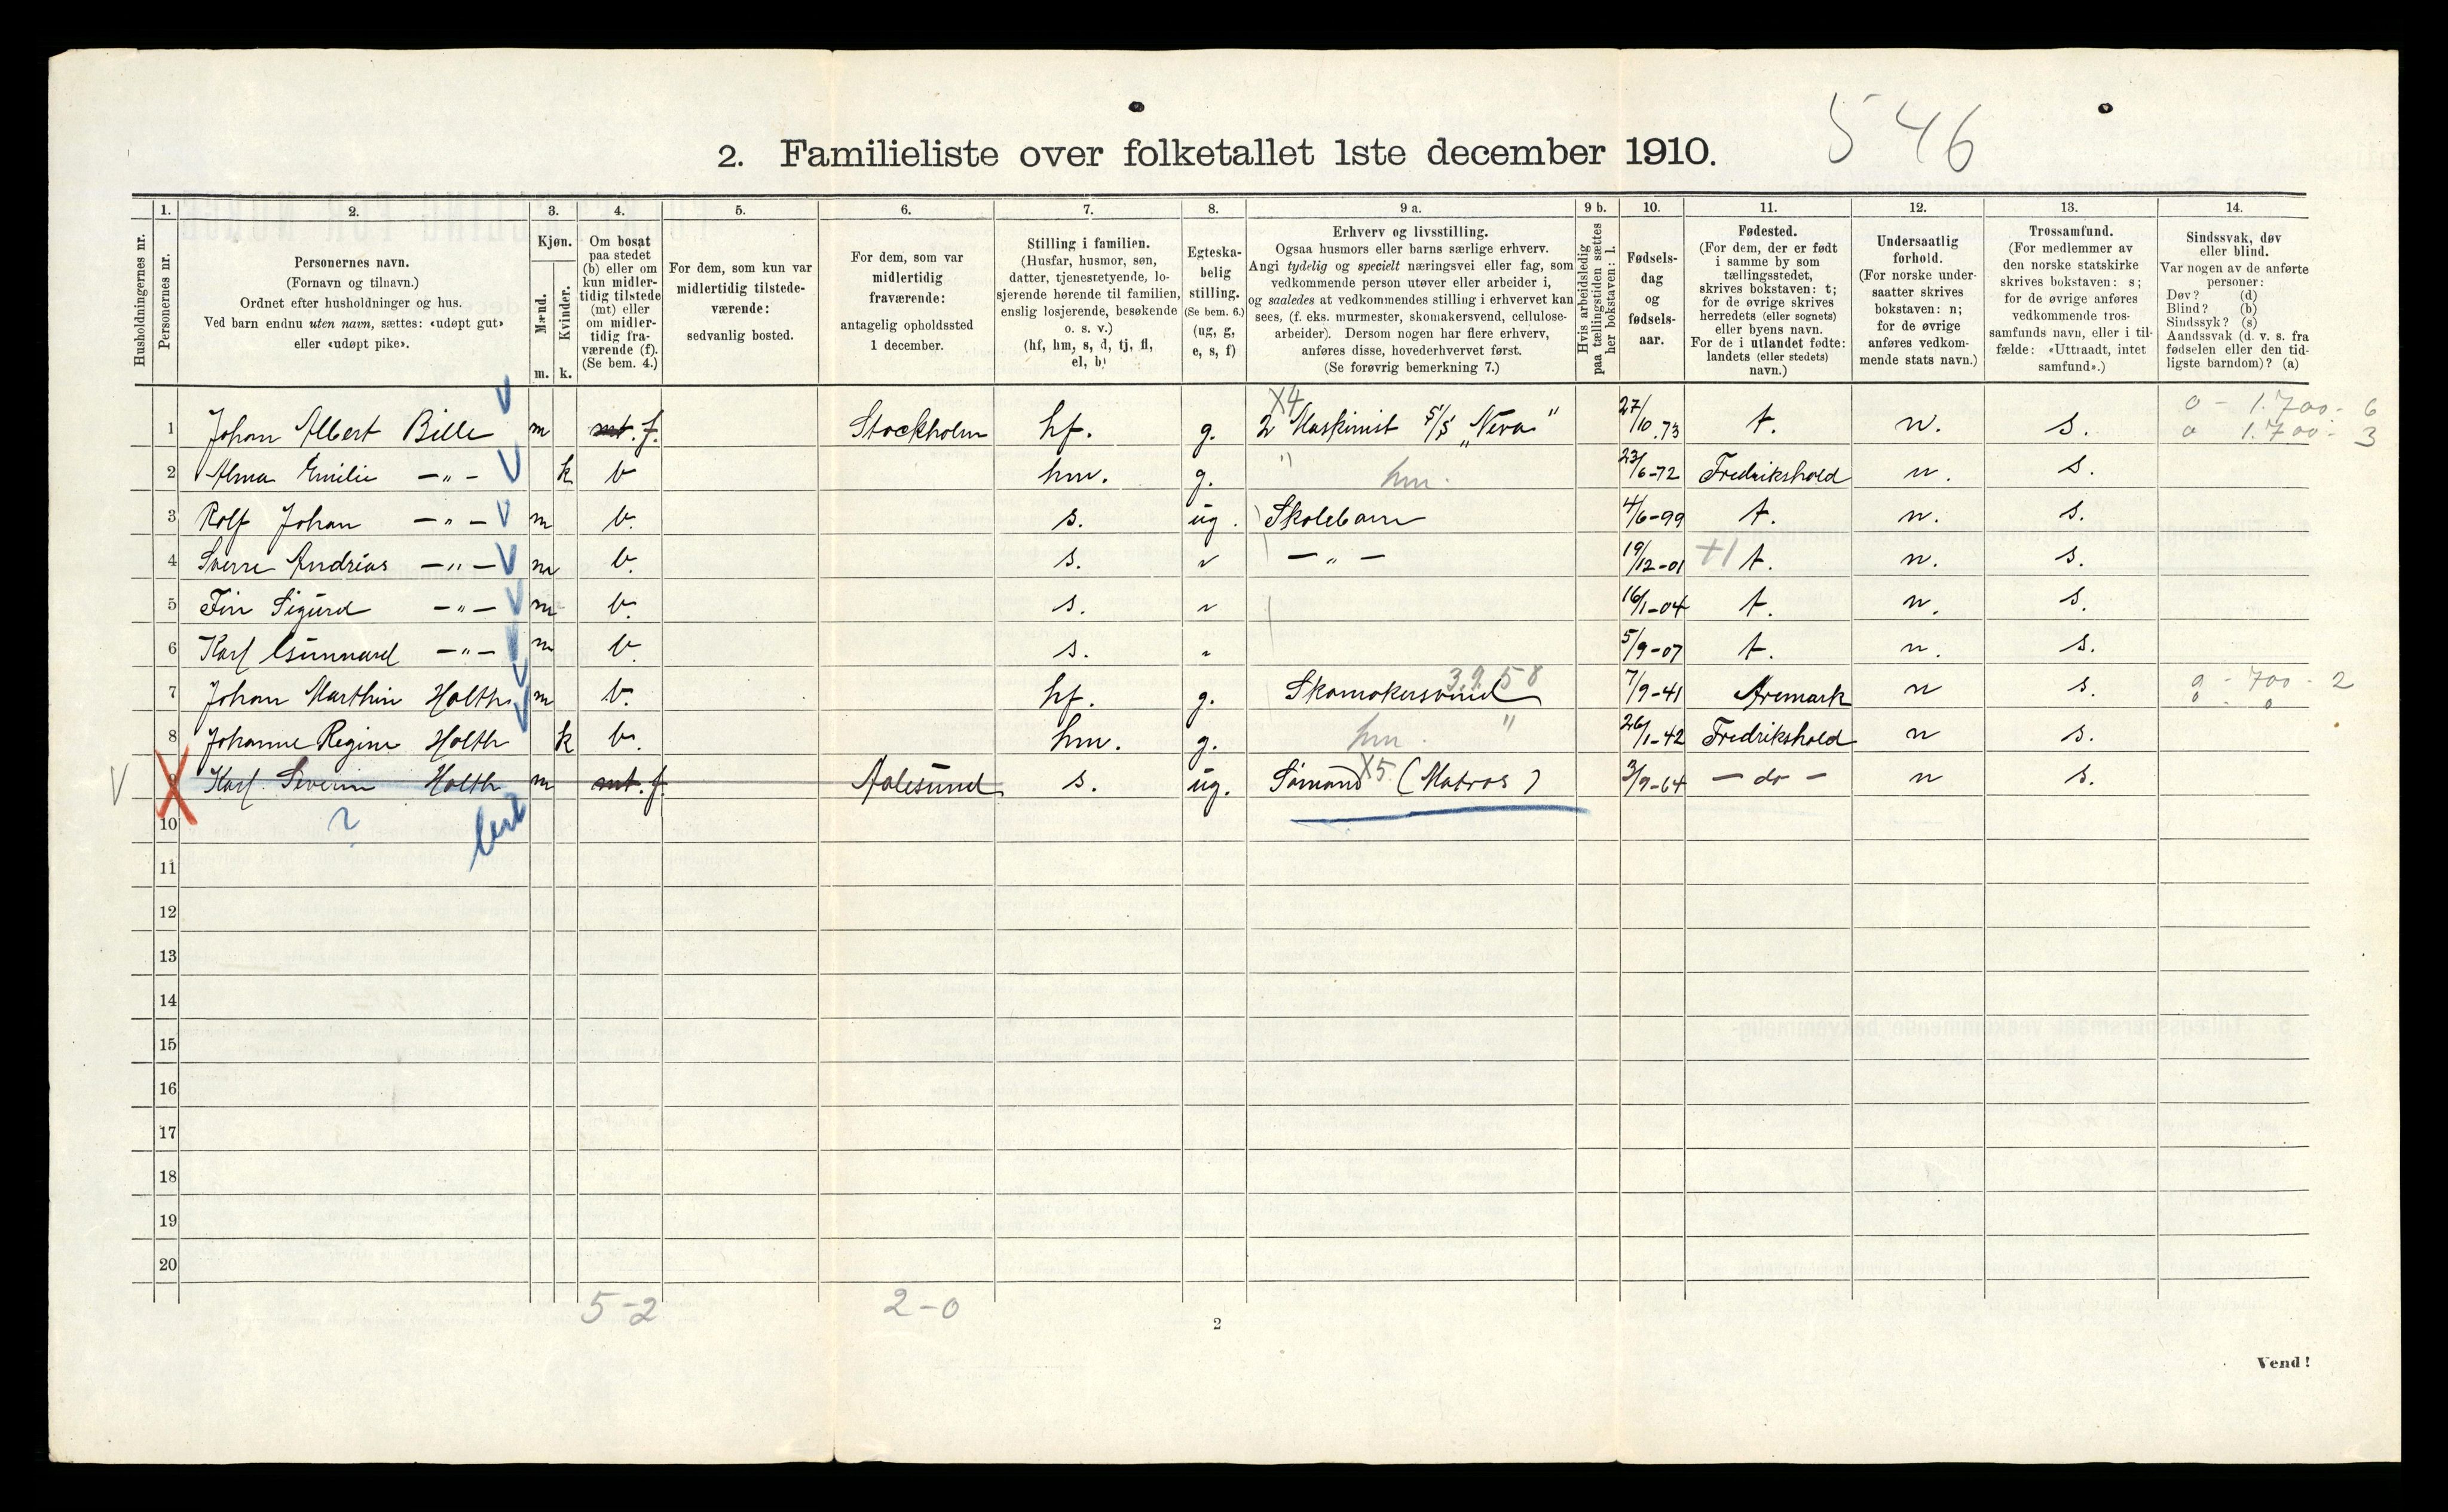 546
2. Familieliste over folketallet 1ste december 1910.
1. 2. 3. 4. 5. 6. 7. 8. 9 a. 9 b. 10. 11. 12. 13. 14.
Husholdningernes nr.
Personernes nr.
Personernes navn.
(Fornavn og tilnavn.)
Ordnet efter husholdninger og hus.
Ved barn endnu uten navn, sættes: «udøpt gut»
eller «udøpt pike».
Kjøn.
Mænd.
Kvinder.
m. k.
Om bosat
paa stedet
(b) eller om
kun midler-
tidig tilstede
(mt) eller
om midler-
tidig fra-
værende (f).
(Se bem. 4.)
For dem, som kun var
midlertidig tilstede-
værende:
sedvanlig bosted.
For dem, som var
midlertidig
fraværende:
antagelig opholdssted
1 december.
Stilling i familien.
(Husfar, husmor, søn,
datter, tjenestetyende, lo-
sjerende hørende til familien,
enslig losjerende, besøkende
o. s. v.)
(hf, hm, s, d, tj, fl,
el, b)
Egteska-
belig
stilling.
(Se bem. 6.)
(ug, g,
e, s, f)
Erhverv og livsstilling.
Ogsaa husmors eller barns særlige erhverv.
Angi tydelig og specielt næringsvei eller fag, som
vedkommende person utøver eller arbeider i,
og saaledes at vedkommendes stilling i erhvervet kan
sees, (f. eks. murmester, skomakersvend, cellulose-
arbeider). Dersom nogen har flere erhverv,
anføres disse, hovederhvervet først.
(Se forøvrig bemerkning 7.)
Hvis arbeidsledig
paa tællingstiden sættes
her bokstaven: l.
Fødsels-
dag
og
fødsels-
aar.
Fødested.
(For dem, der er født
i samme by som
tællingsstedet,
skrives bokstaven: t;
for de øvrige skrives
herredets (eller sognets)
eller byens navn.
For de i utlandet fødte:
landets (eller stedets)
navn.)
Undersaatlig
forhold.
(For norske under-
saatter skrives
bokstaven: n;
for de øvrige
anføres vedkom-
mende stats navn.)
Trossamfund.
(For medlemmer av
den norske statskirke
skrives bokstaven: s;
for de øvrige anføres
vedkommende tros-
samfunds navn, eller i til-
fælde: «Uttraadt, intet
samfund».)
Sindssvak, døv
eller blind.
Var nogen av de anførte
personer:
Døv? (d)
Blind? (b)
Sindssyk? (s)
Aandssvak (d. v. s. fra
fødselen eller den tid-
ligste barndom)? (a)
X4 0 - 1.700 - 6
1 Johan Albert Bille m mt. f. Stockholm hf. g. 2 Maskinist S/S „Neva" 27/10.73 t. n. s. 0 1.700 - 3
2 Alma Emilie —"— k b hm. g. " hm. 23/6-72 Fredrikshald n. s.
3 Rolf Johan —"— m b. s. ug. Skolebarn 4/6-99 t. n. s.
4 Sverre Andrias —"— m b. s. " —"— 19/12-01 +1 t. n. s.
5 Fin Sigurd —"— m b. s. " 16/1-04 t. n. s.
6 Karl Gunnard —"— m b. s. " 5/9-07 t. n. s.
7 Johan Marthin Holth m b. hf. g. Skomakersvend 3.9.58 7/9-41 Aremark n s. 0 - 700 - 2
8 Johanne Regine Holth k b. hm. g. hm. " 26/1-42 Fredrikshald n s.
V X 9 Karl Severin Holth m mt. f. Aalesund s. ug. Sømand X5. (Matros) 3/9-64 — do — n s.
10 ?
11
12
13
14
15
16
17
18
19
20
5-2 2-0
2
Vend!